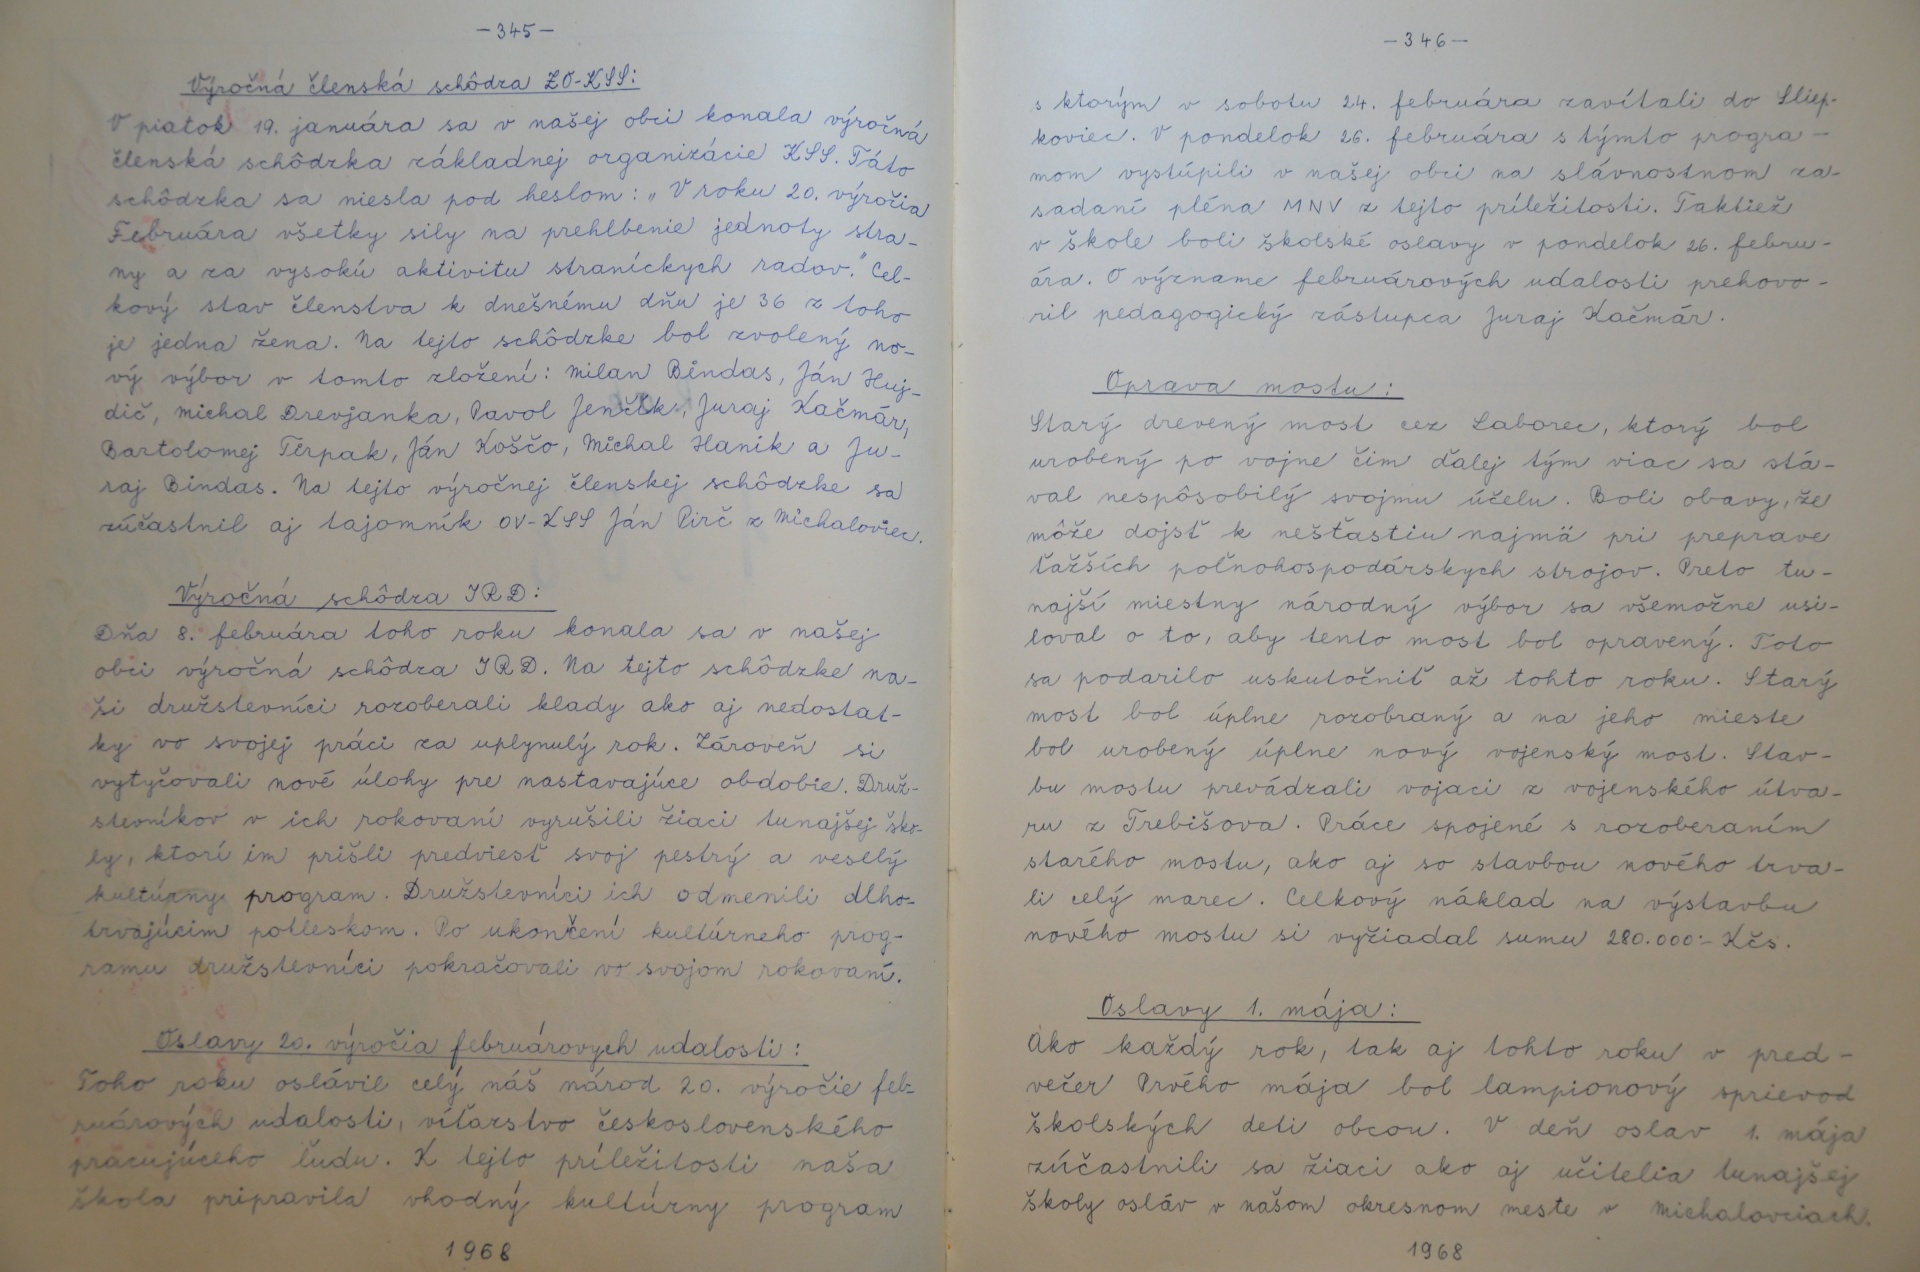 -345-
Výročná členská schôdza ZO-KSS:
V piatok 19. januára sa v našej obci konala výročná
členská schôdzka základnej organizácie KSS. Táto
schôdzka sa niesla pod heslom: „V roku 20. výročia
Februára všetky sily na prehlbenie jednoty stra-
ny a za vysokú aktivitu straníckych radov." Cel-
kový stav členstva k dnešnému dňu je 36 z toho
je jedna žena. Na tejto schôdzke bol zvolený no-
vý výbor v tomto zložení: Milan Bindas, Ján Huj-
dič, Michal Drevjanka, Pavol Jenčík, Juraj Kačmár,
Bartolomej Térpak, Ján Koščo, Michal Hanik a Ju-
raj Bindas. Na tejto výročnej členskej schôdzke sa
zúčastnil aj tajomník OV-KSS Ján Pirč z Michaloviec.
Výročná schôdza JRD:
Dňa 8. februára toho roku konala sa v našej
obci výročná schôdza JRD. Na tejto schôdzke na-
ši družstevníci rozoberali klady ako aj nedostat-
ky vo svojej práci za uplynulý rok. Zároveň si
vytyčovali nové úlohy pre nastavajúce obdobie. Druž-
stevníkov v ich rokovaní vyrušili žiaci tunajšej ško-
ly, ktorí im prišli predviesť svoj pestrý a veselý
kultúrny program. Družstevníci ich odmenili dlho-
trvajúcim potleskom. Po ukončení kultúrneho prog-
ramu družstevníci pokračovali vo svojom rokovaní.
Oslavy 20. výročia februárovych udalosti:
Toho roku oslávil celý náš národ 20. výročie feb-
ruárových udalosti, víťazstvo československého
pracujúceho ľudu. K tejto príležitosti naša
škola pripravila vhodný kultúrny program
1968
-346-
s ktorým v sobotu 24. februára zavítali do Sliep-
koviec. V pondelok 26. februára s týmto progra-
mom vystúpili v našej obci na slávnostnom za-
sadaní pléna MNV z tejto príležitosti. Taktiež
v škole boli školské oslavy v pondelok 26. febru-
ára. O význame februárových udalosti prehovo-
ril pedagogický zástupca Juraj Kačmár.
Oprava mostu:
Starý drevený most cez Laborec, ktorý bol
urobený po vojne čim ďalej tým viac sa stá-
val nespôsobilý svojmu účelu. Boli obavy, že
môže dojsť k nešťastiu najmä pri preprave
ťažších poľnohospodárskych strojov. Preto tu-
najší miestny národný výbor sa všemožne usi-
loval o to, aby tento most bol opravený. Toto
sa podarilo uskutočniť až tohto roku. Starý
most bol úplne rozobraný a na jeho mieste
bol urobený úplne nový vojenský most. Stav-
bu mostu prevádzali vojaci z vojenského útva-
ru z Trebišova. Práce spojené s rozoberaním
starého mostu, ako aj so stavbou nového trva-
li celý marec. Celkový náklad na výstavbu
nového mostu si vyžiadal sumu 280.000:- Kčs.
Oslavy 1. mája:
Ako každý rok, tak aj tohto roku v pred-
večer Prvého mája bol lampionový sprievod
školských deti obcou. V deň oslav 1. mája
zúčastnili sa žiaci ako aj učitelia tunajšej
školy osláv v našom okresnom meste v Michalovciach.
1968